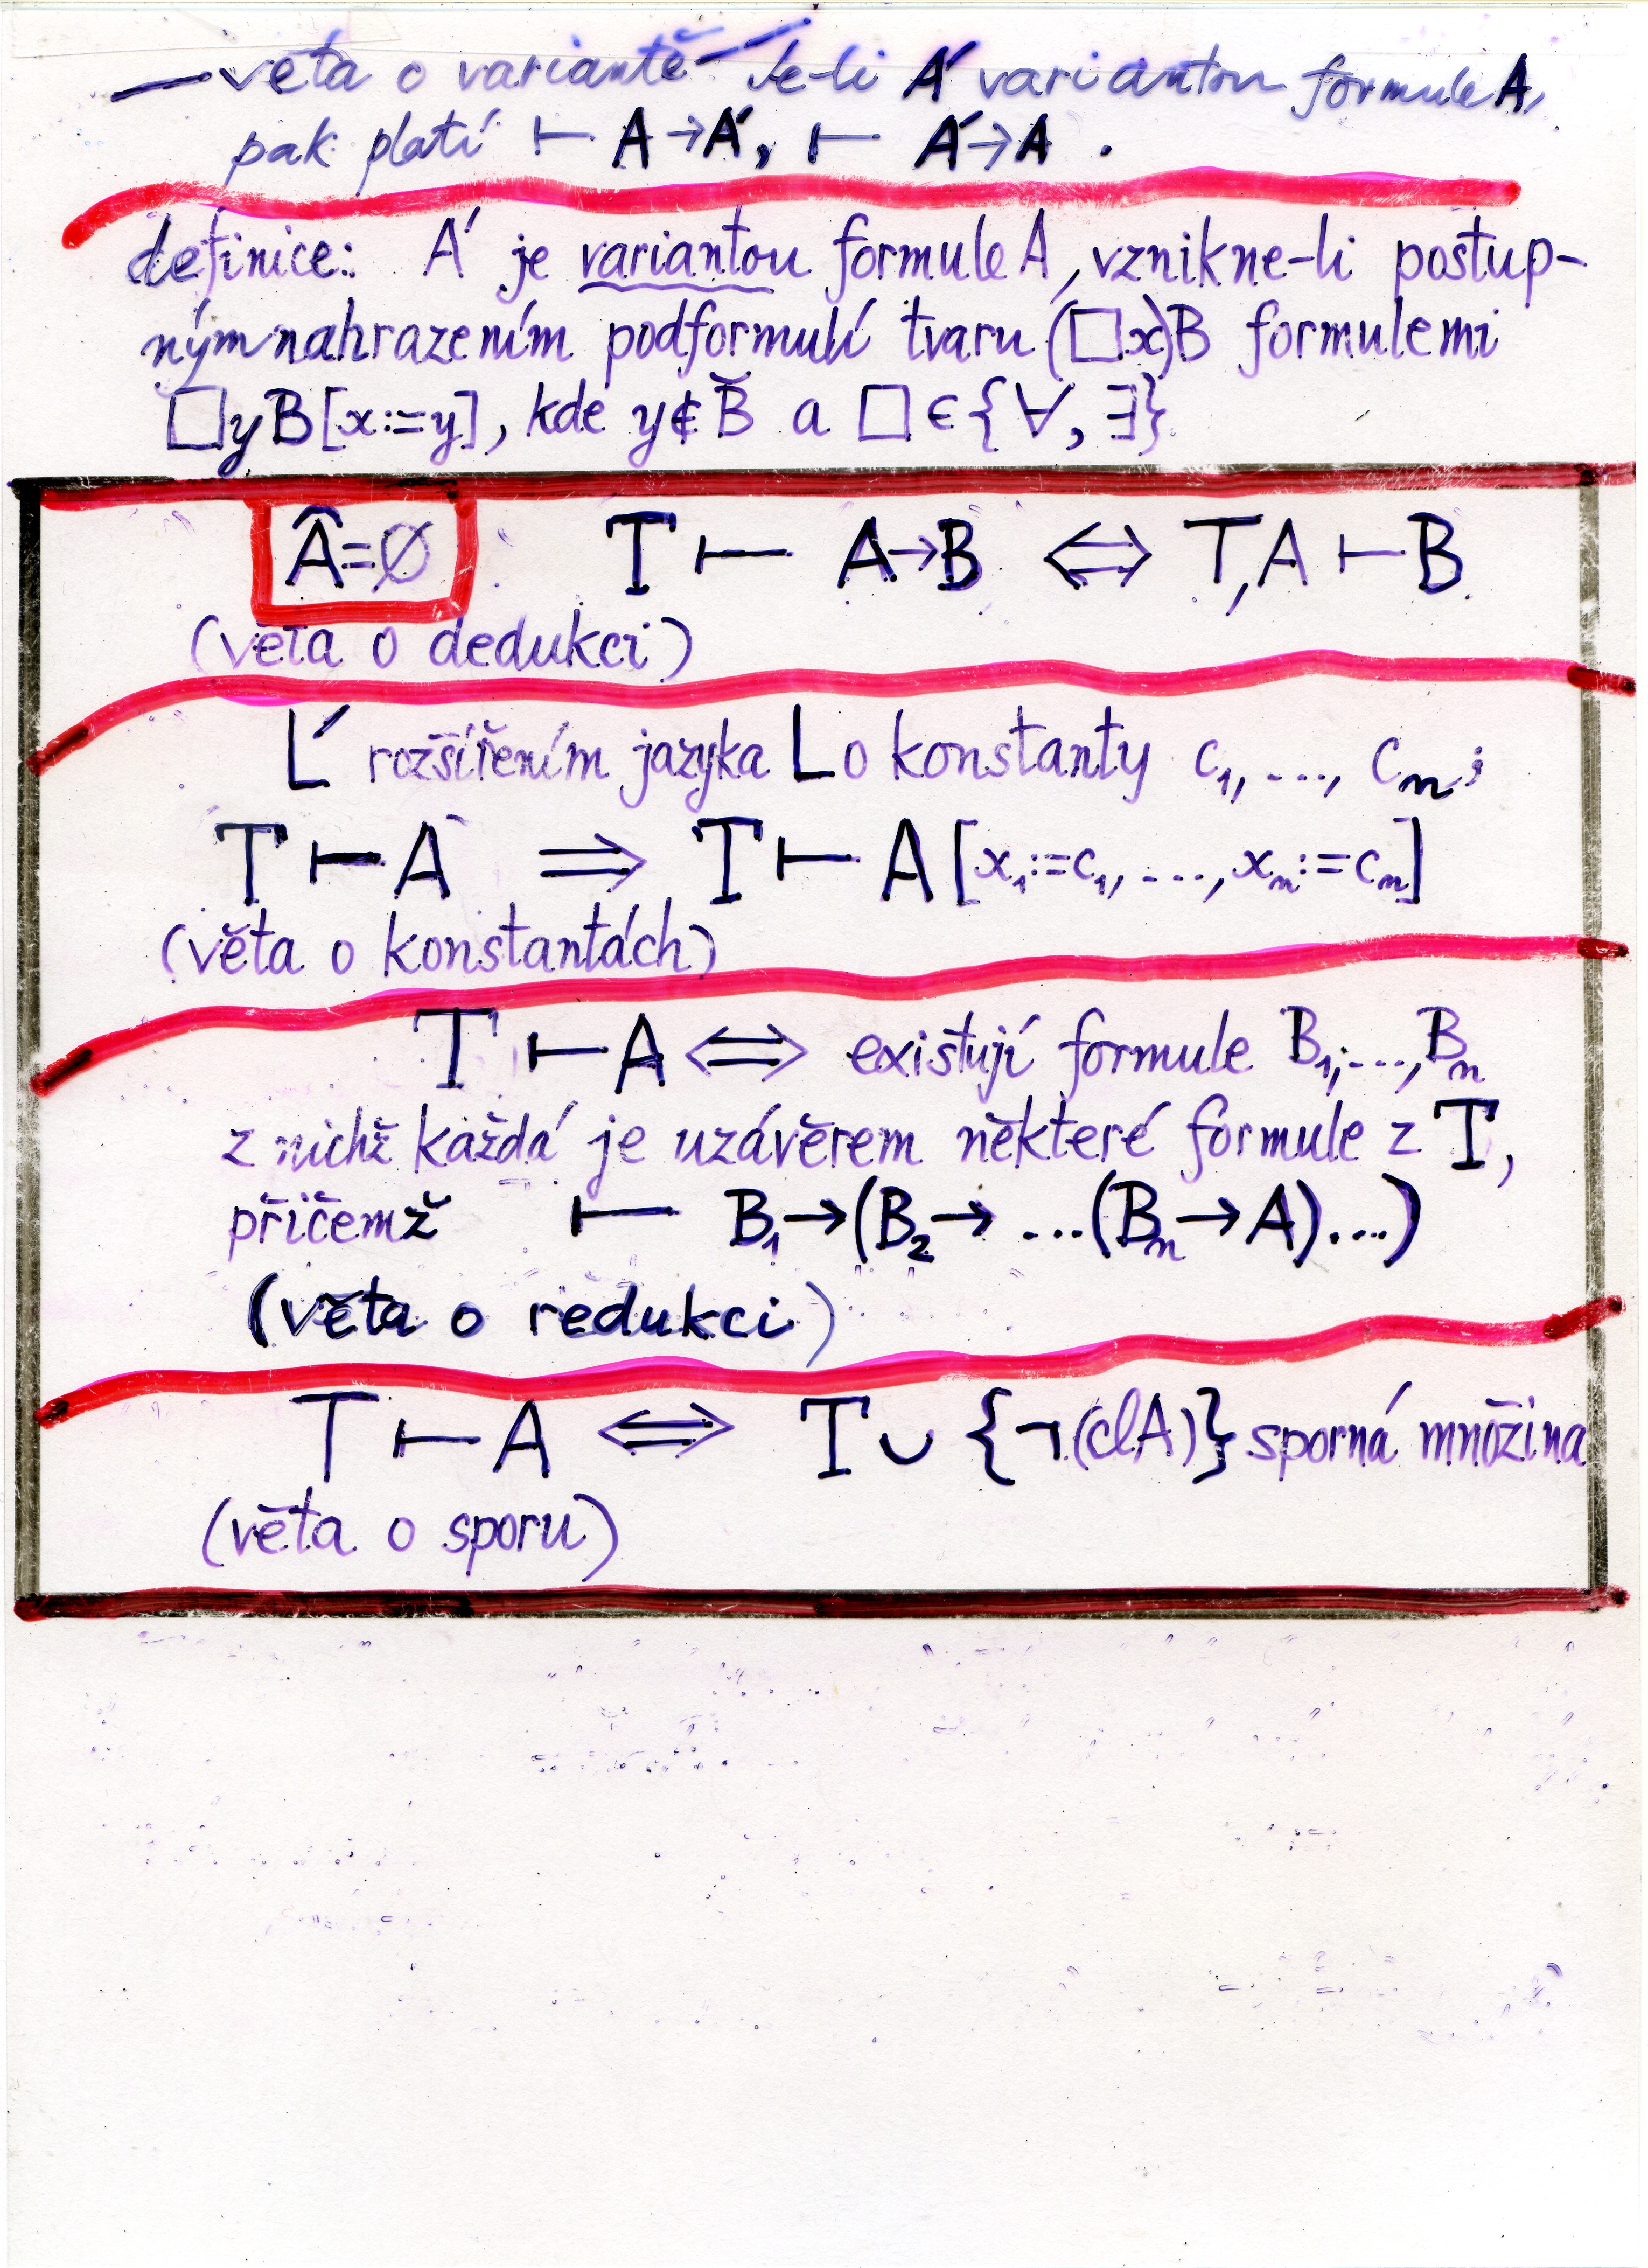 — věta o variantě – Je-li A' variantou formule A,
pak platí ⊢ A→A', ⊢ A'→A .
definice: A' je variantou formule A, vznikne-li postup-
ným nahrazením podformulí tvaru (□x)B formulemi
□yB[x:=y], kde y∉B̆ a □∈{∀,∃}
Â=∅ T ⊢ A→B ⇔ T,A ⊢ B
(věta o dedukci)
L' rozšířením jazyka L o konstanty c₁, ..., cₙ;
T ⊢ A ⇒ T ⊢ A[x₁:=c₁, ..., xₙ:=cₙ]
(věta o konstantách)
T ⊢ A ⇔ existují formule B₁, ..., Bₙ
z nichž každá je uzávěrem některé formule z T,
přičemž ⊢ B₁→(B₂→ ...(Bₙ→A)...)
(věta o redukci)
T ⊢ A ⇔ T ∪ {¬(clA)} sporná množina
(věta o sporu)